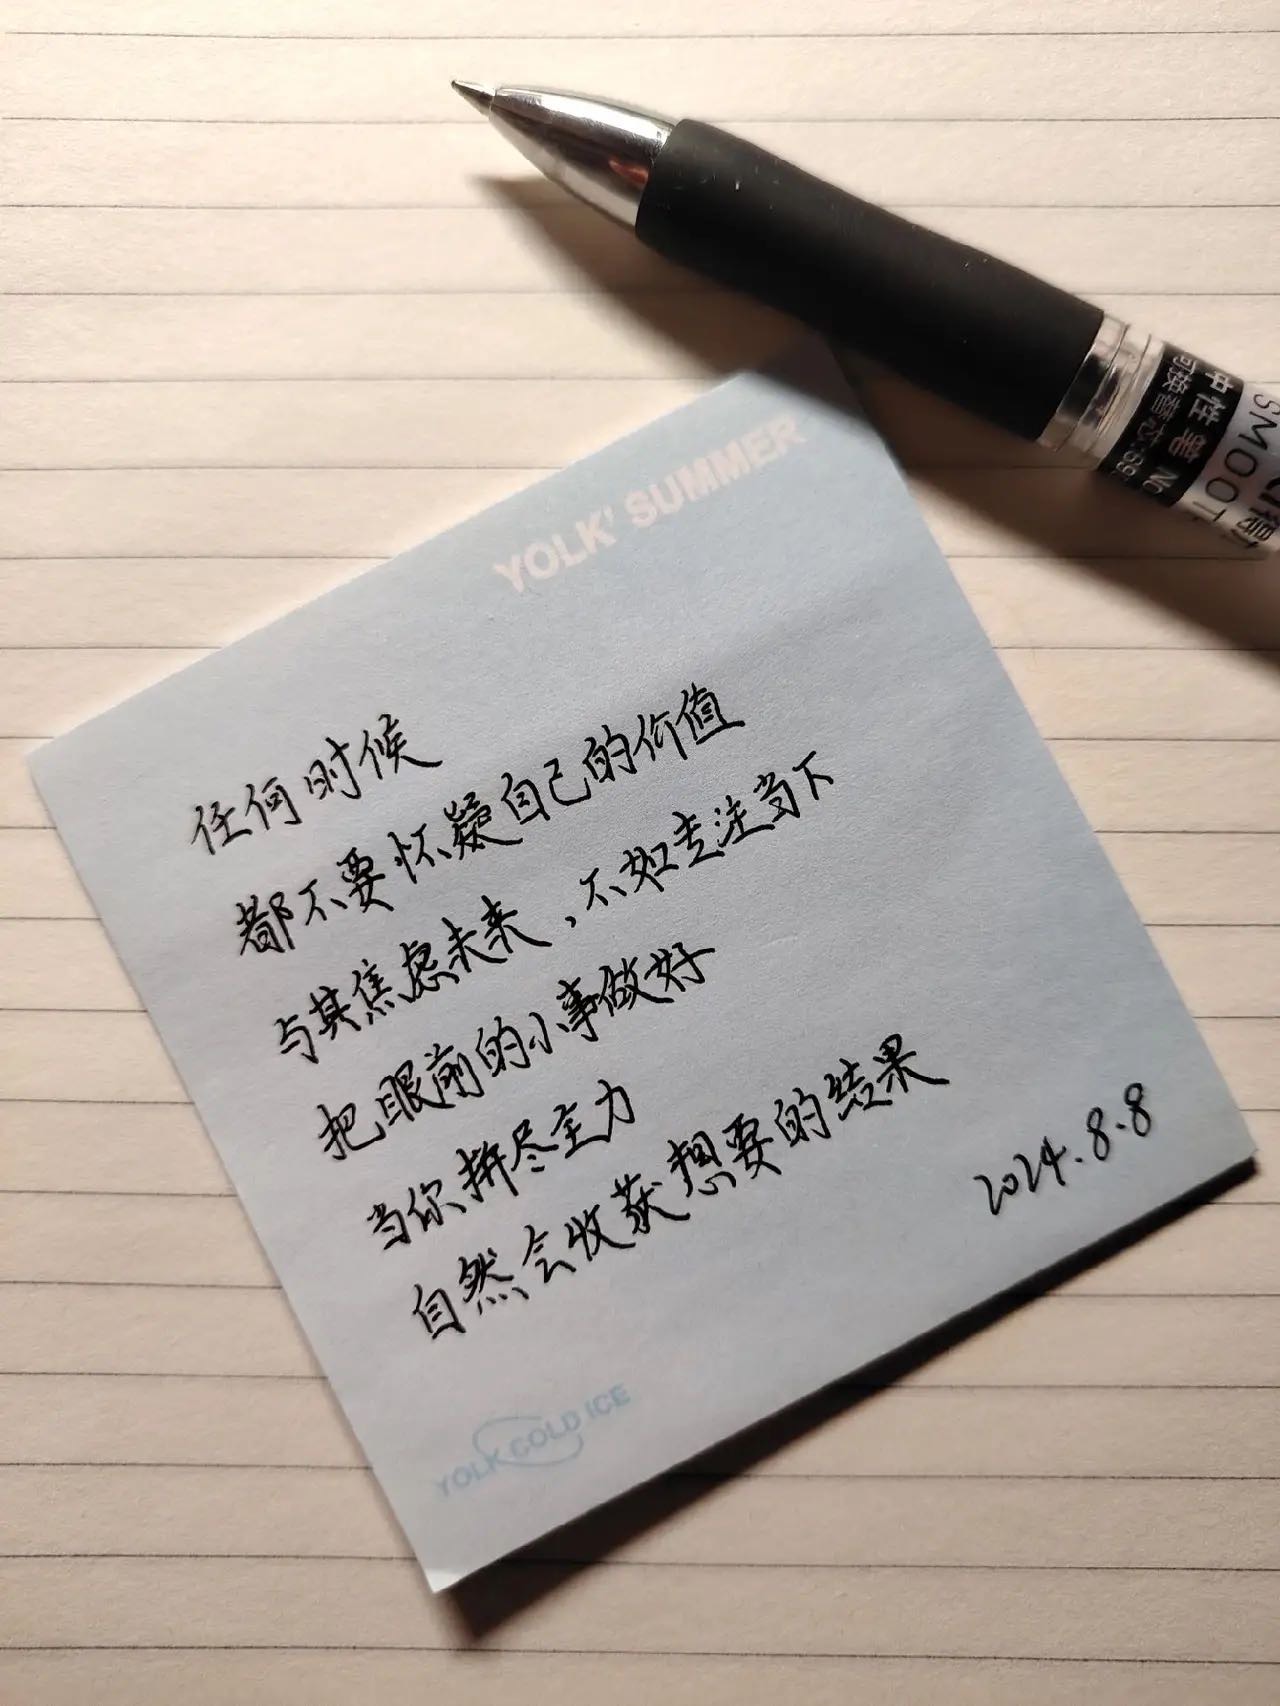 中性笔 No
可换替芯:69
SMOOT
YOLK' SUMMER
任何时候
都不要怀疑自己的价值
与其焦虑未来,不如专注当下
把眼前的小事做好
当你拼尽全力
自然会收获想要的结果
2024.8.8
YOLK COLD ICE